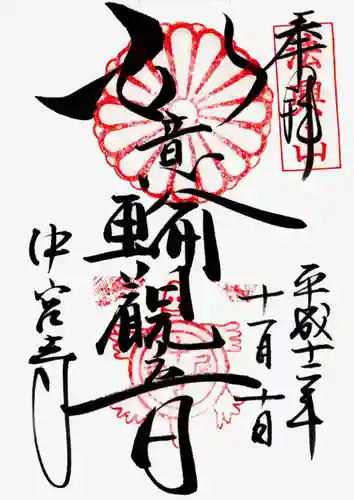 奉拝
平成十二年
十一月十日
如意輪観音
中宮寺